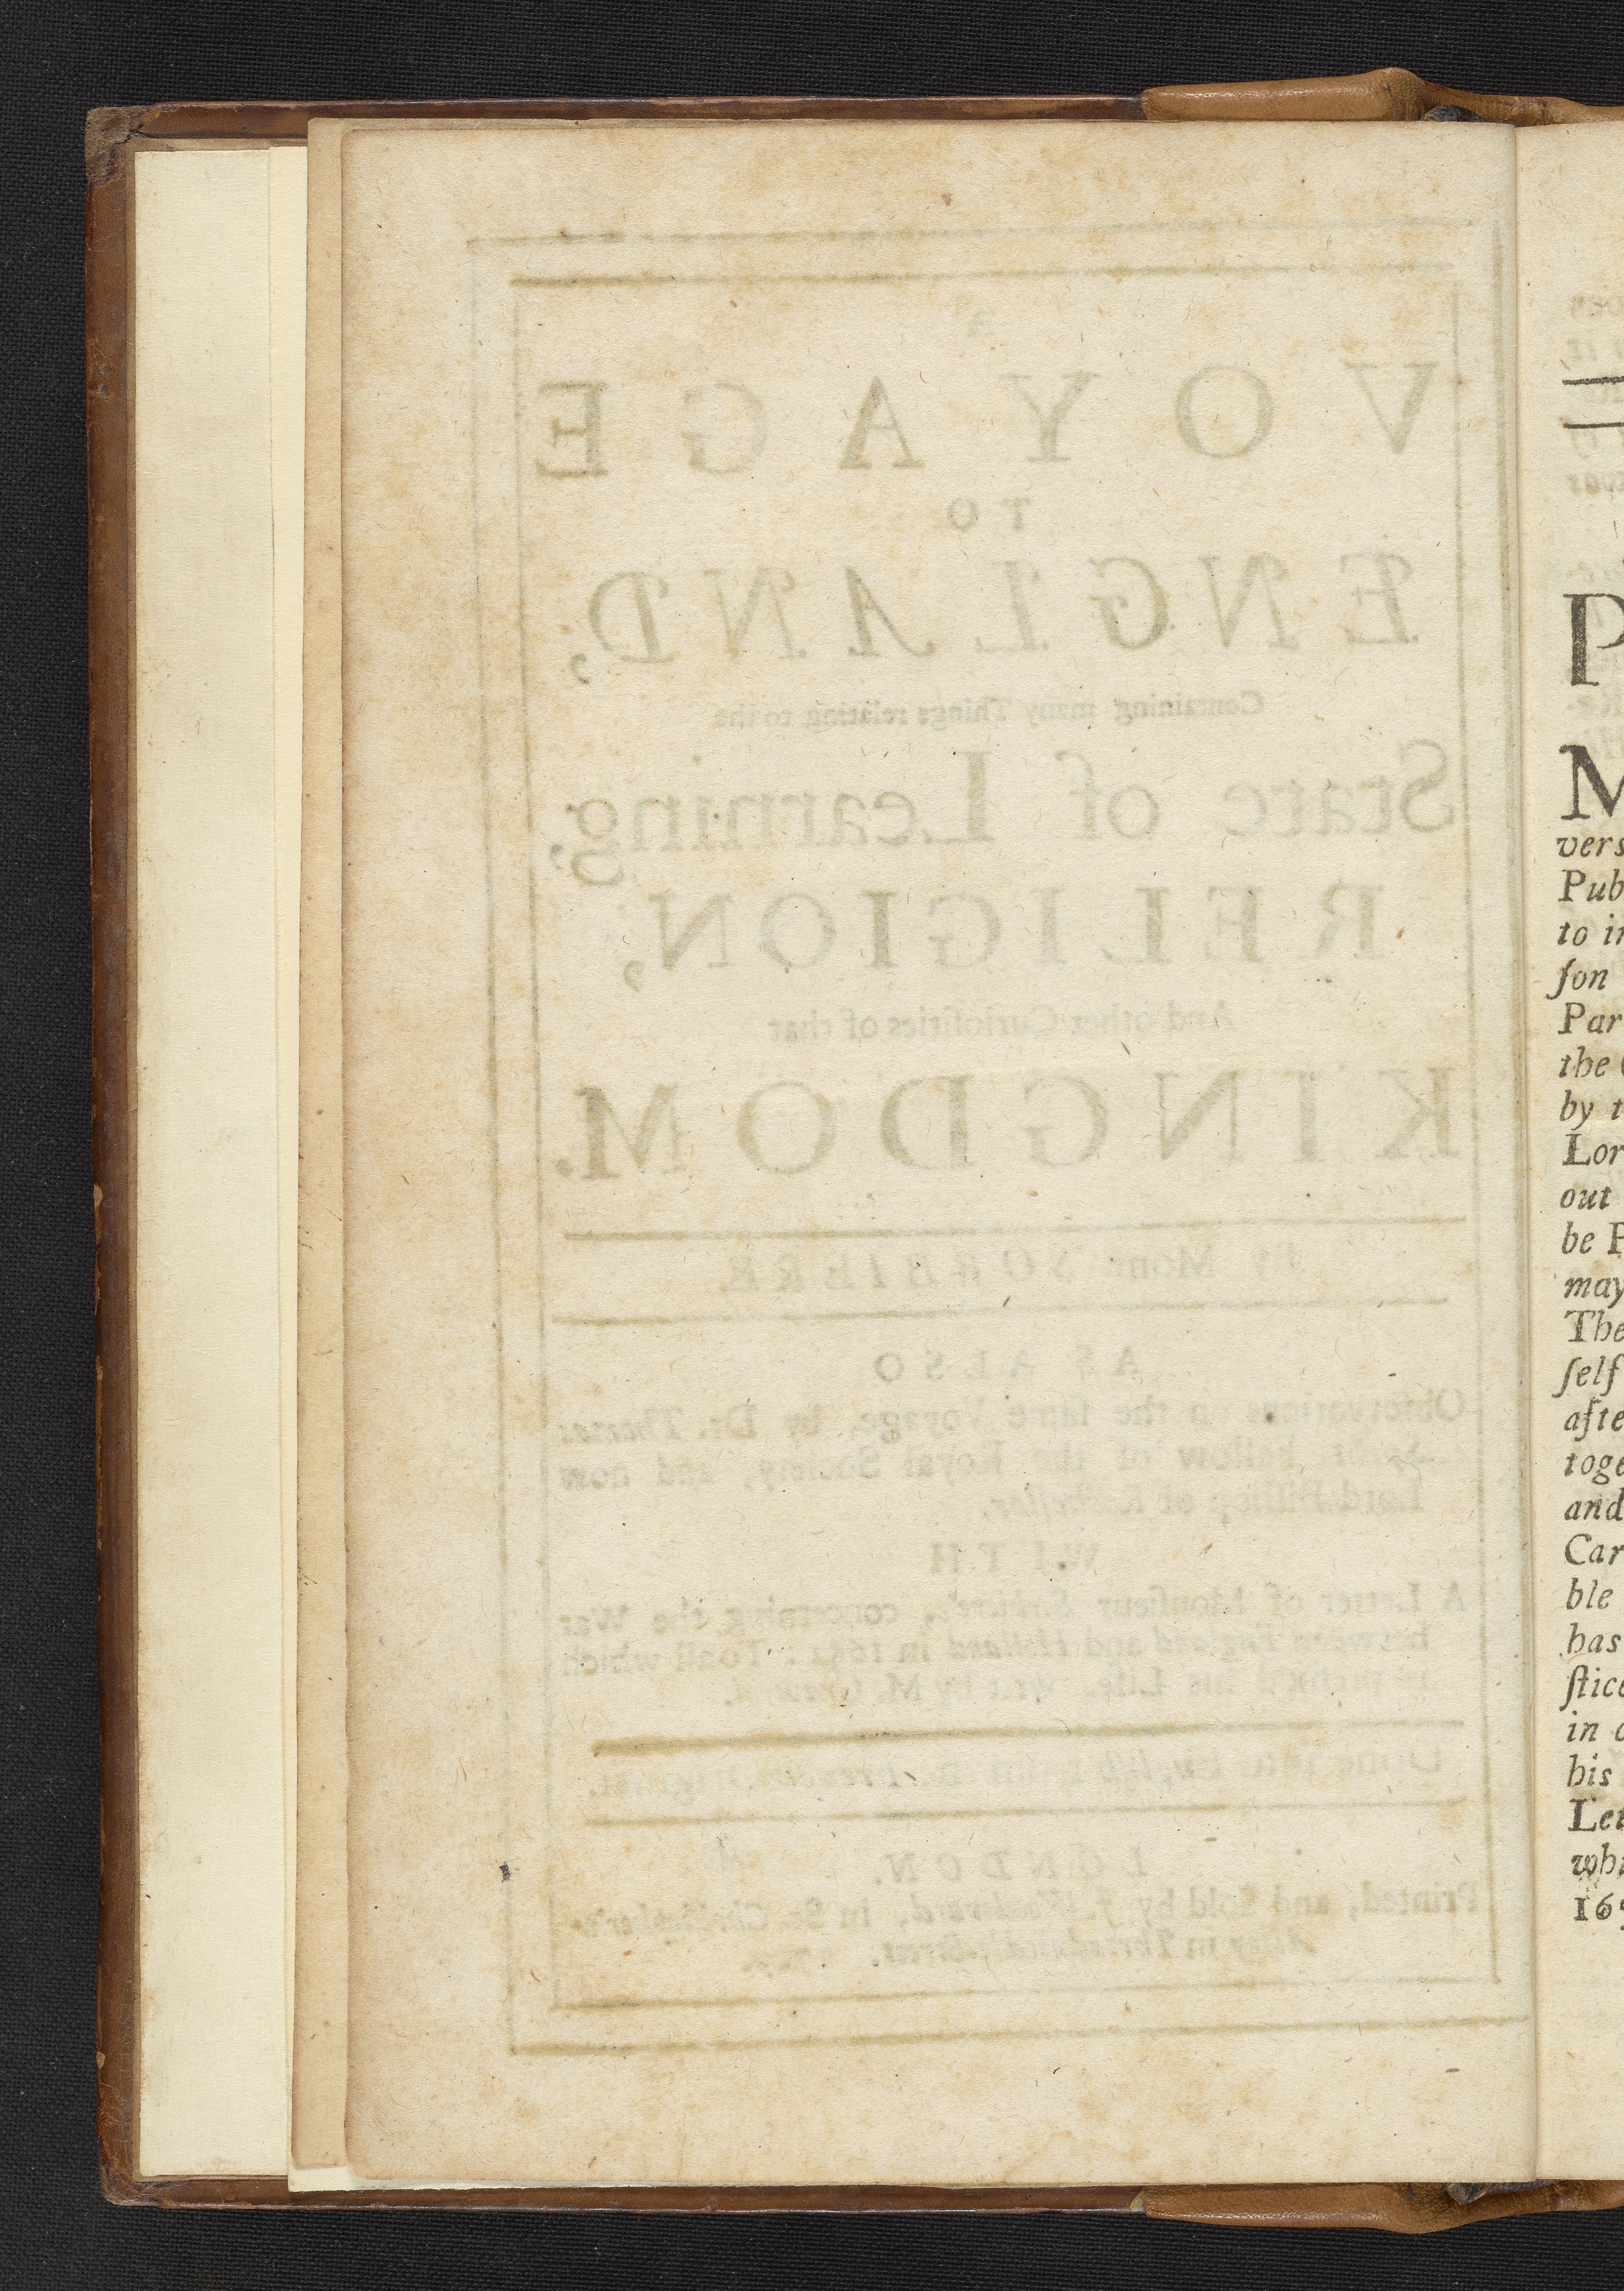 A
VOYAGE
TO
ENGLAND,
Containing many Things relating to the
State of Learning,
RELIGION,
And other Curiosities of that
KINGDOM.
By Monſ. SORBIERE.
AS ALSO
Obſervations on the ſame Voyage, by Dr. Thomas
Sprat, Fellow of the Royal Society, and now
Lord Biſhop of Rocheſter.
WITH
A Letter of Monſieur Sorbiere's, concerning the War
between England and Holland in 1652: To all which
is prefix'd his Life, writ by M. Graverol.
Done into Engliſh
LONDON,
Printed, and Sold by J. Woodward, in St. Chriſtopher's-
Alley in Threadneedle-Street,
P
M
vers
Pub
to i
ſon
Par
the
by t
Lor
out
be
may
The
ſelf
afte
toge
and
Car
ble
has
ſtice
in
his
Let
wh